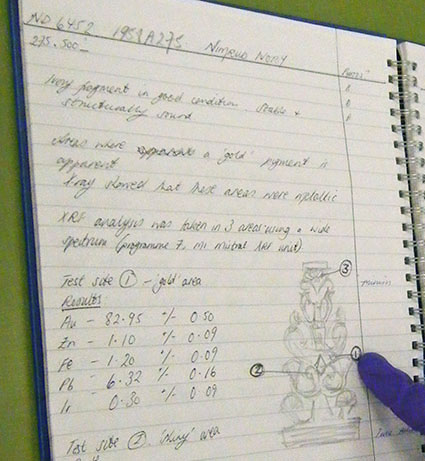 ND 6452 1958A275. Nimrud Ivory
275.500
Ivory fragment in good condition. Stable +
structurally sound
Areas where a 'gold' pigment is
apparent
Xray showed that these areas were metallic
XRF analysis was taken in 3 areas using a wide
spectrum (programme 7, m1 mistral XRF unit)
Test site ① - 'gold' area
Results
Au - 82.95 +/- 0.50
Zn - 1.10 +/- 0.09
Fe - 1.20 +/- 0.09
Pb - 6.32 +/- 0.16
Ir - 0.30 +/- 0.09
③
①
②
Test site ② 'shiny' area